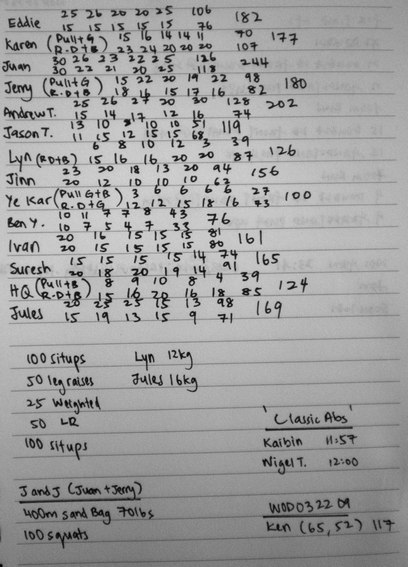 25 26 20 20 25 106
Eddie 182
15 15 15 15 15 76
Karen (Pull+G 15 16 14 14 11 70 177
R-D+B) 23 24 20 20 20 107
Juan 30 26 23 22 25 126 244
30 22 21 20 25 118
Jerry (Pull+G 15 22 20 19 22 98 180
R-D+B) 18 16 15 17 16 82
25 26 27 20 30 128
Andrew T. 202
15 14 17 12 16 74
Jason T. 13 10 8 10 10 51 119
11 15 12 15 15 68
6 8 10 12 3 39
Lyn (RD+B) 15 16 16 20 20 87 126
Jinn 23 20 18 13 20 94 156
20 12 10 10 10 62
Ye Kar (Pull G+B 3 6 6 6 6 27 100
R-D+G) 12 12 15 18 16 73
Ben Y. 10 11 7 7 8 43 76
10 7 5 4 7 33
Ivan 20 16 15 15 15 81 161
20 15 15 15 15 80
Suresh 15 15 15 15 14 74 165
20 18 20 19 14 91
HQ (Pull+B 8 9 10 8 4 39 124
R-D+B) 15 16 20 16 18 85
Jules 20 25 25 15 13 98 169
15 19 13 15 9 71
100 situps Lyn 12kg
50 leg raises Jules 16kg
25 Weighted
50 LR
100 situps
'Classic Abs'
Kaibin 11:57
Nigel T. 12:00
J and J (Juan + Jerry)
400m sand Bag 70lbs
100 squats
WOD 03 22 09
Ken (65, 52) 117